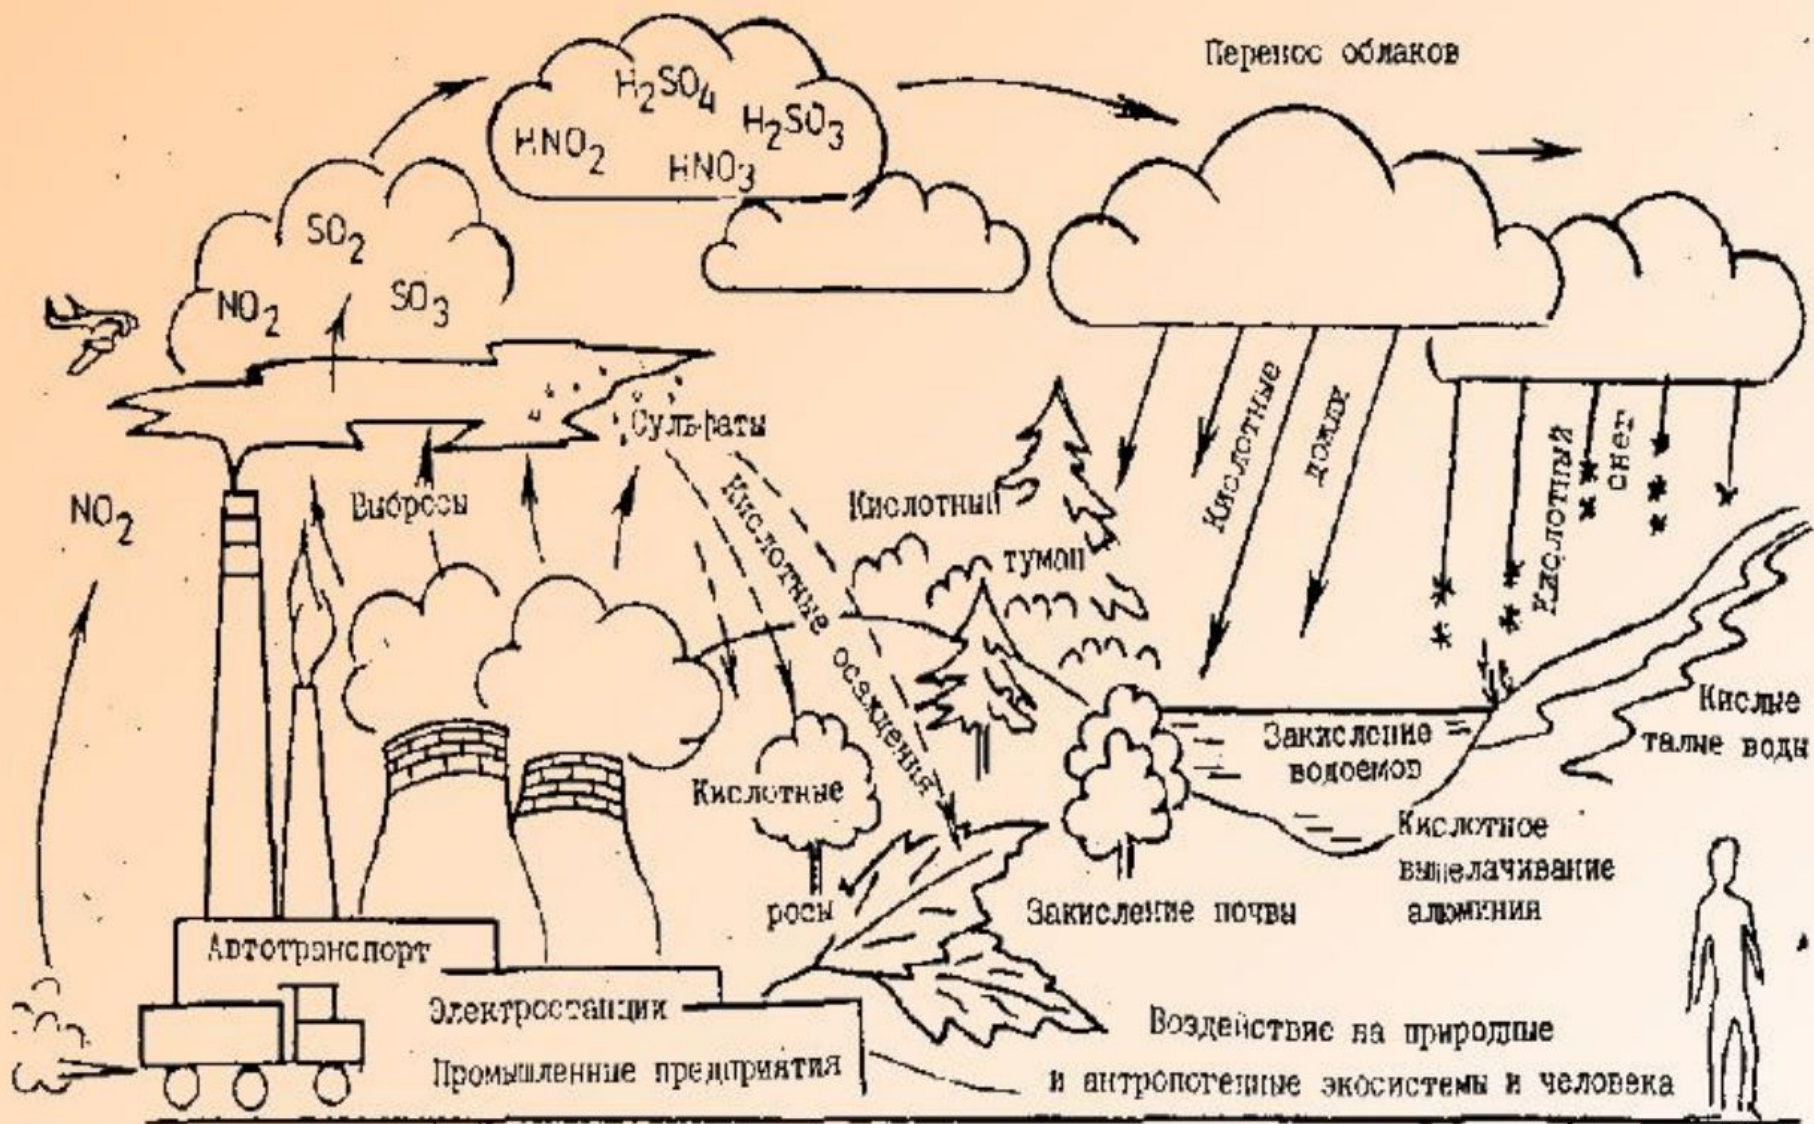 Перенос облаков
H₂SO₄
H₂SO₃
HNO₂
HNO₃
SO₂
NO₂
SO₃
Сульфаты
NO₂
Выбросы
Кислотные осаждения
Кислотный
туман
Кислотные
дожди
Кислотный
снег
Кислые
талые воды
Закисление
водоемов
Кислотные
росы
Кислотное
выщелачивание
алюминия
Закисление почвы
Автотранспорт
Электростанции
Промышленные предприятия
Воздействие на природные
и антропогенные экосистемы и человека